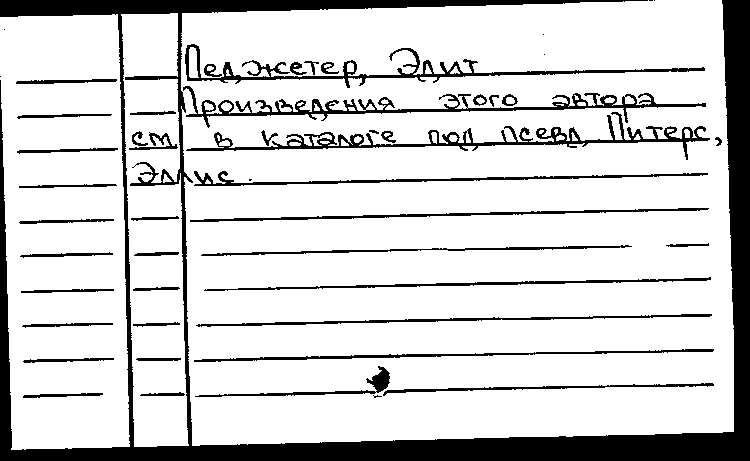 Педжетер, Эдит
Произведения этого автора
см. в каталоге под псевд. Питерс,
Эллис.